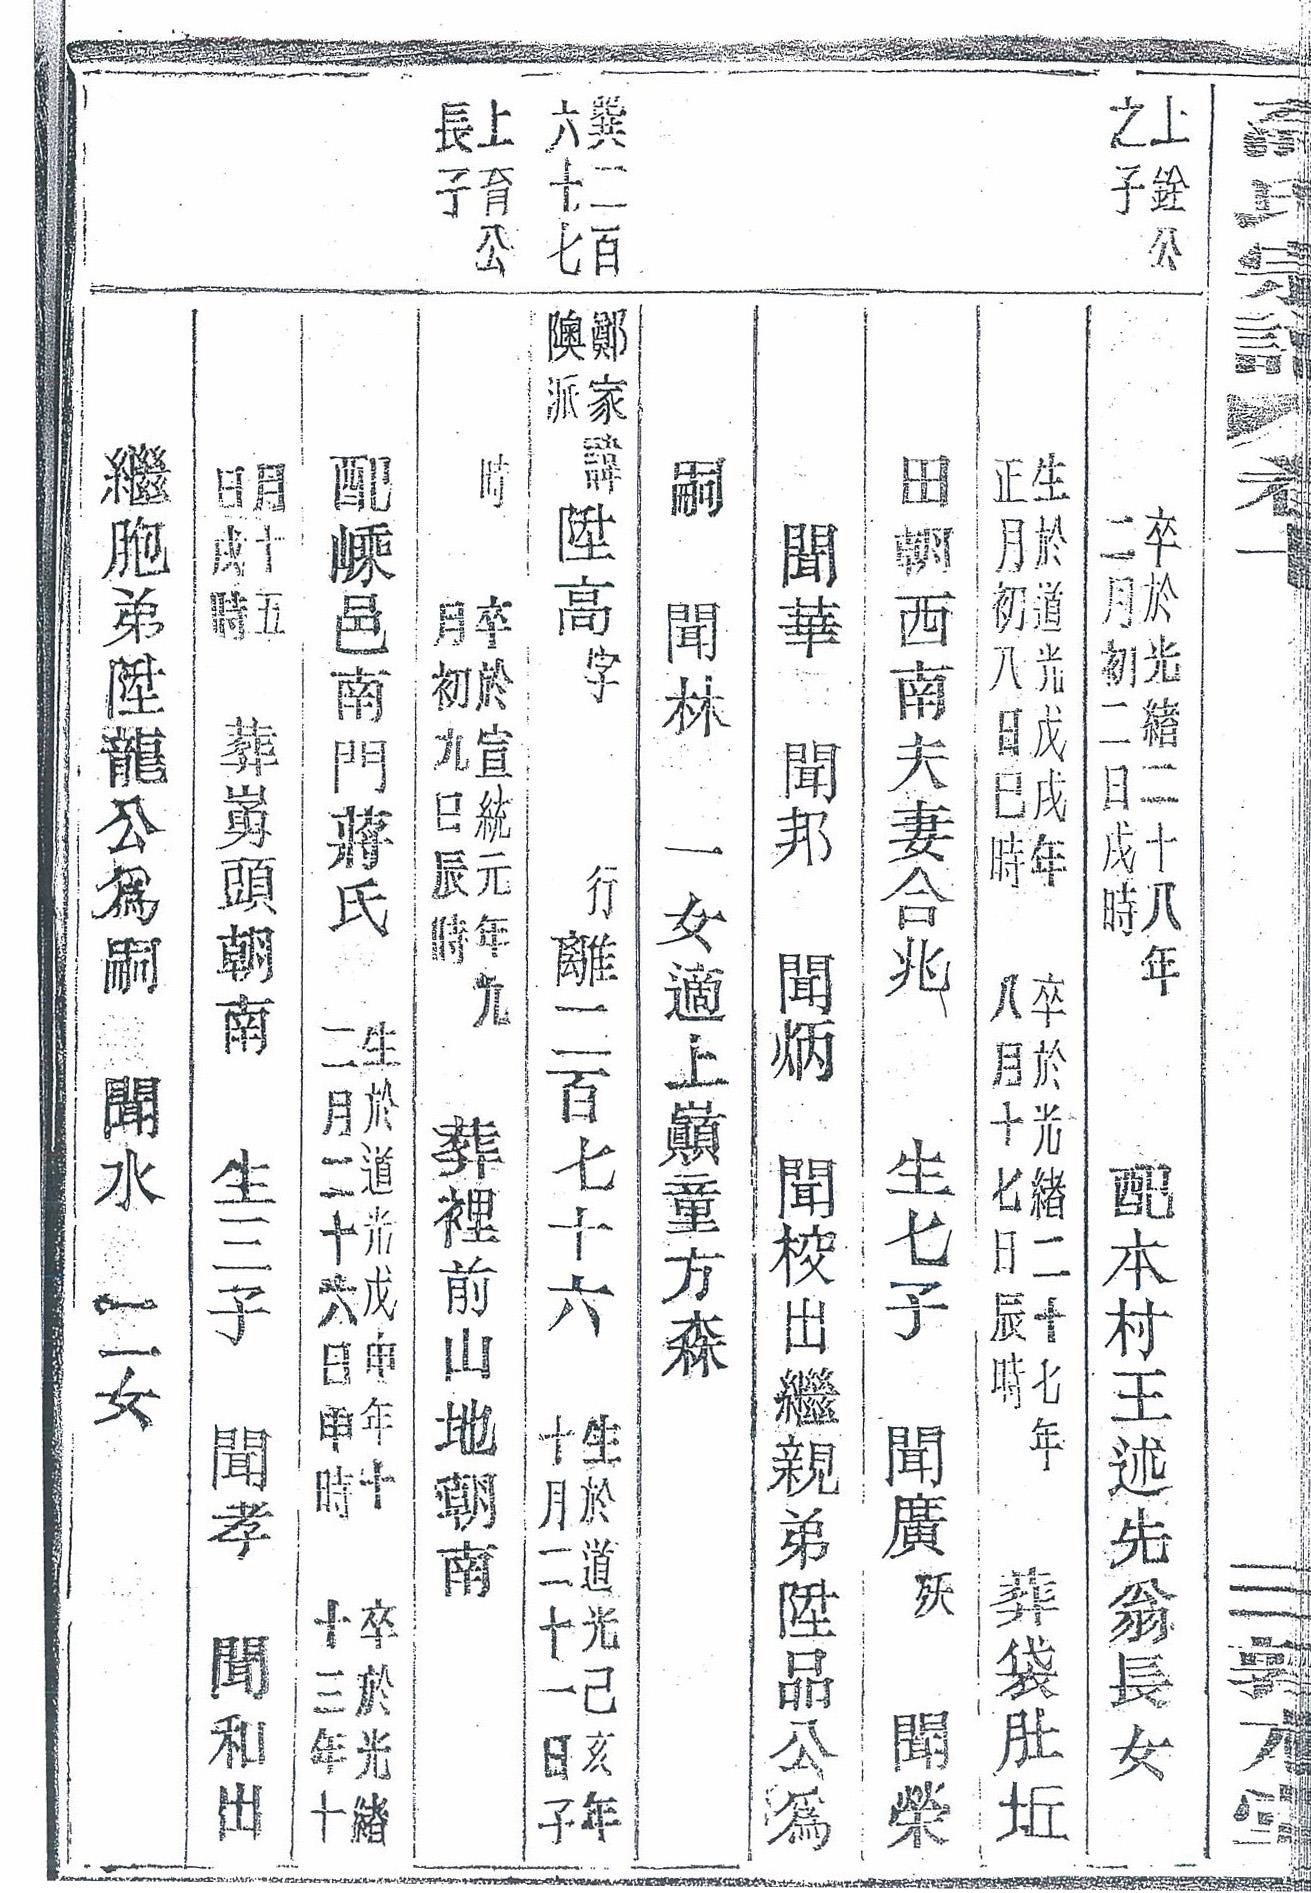 氏宗譜 卷一
上銓公
之子
卒於光緒二十八年
二月初二日戌時
配本村王述先翁長女
生於道光戊戌年
正月初八日巳時
卒於光緒二十七年
八月十七日辰時
葬袋肚坵
田朝西南夫妻合兆 生七子 聞廣 殀 聞榮
聞華 聞邦 聞炳 聞校出繼親弟陞品公爲
嗣 聞林 一女適上巔童方森
巽二百
六十七
鄭家
隩派
諱陞高字 行離一二百七十六
生於道光己亥年
十月二十一日子
上育公
長子
時
卒於宣統元年九
月初九日辰時
葬裡前山地朝南
配嵊邑南門蔣氏
生於道光戊申年十
二月二十六日申時
卒於光緒
十三年十
月十五
日戌時
葬嵙頭朝南 生三子 聞孝 聞和出
繼胞弟陞龍公爲嗣 聞水 二女